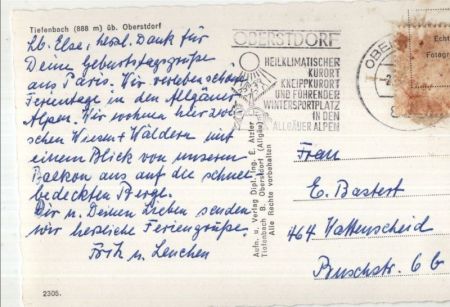 Tiefenbach (888 m) üb. Oberstdorf
Lb. Else, herzl. Dank für
Deine Geburtstagsgrüße
aus Paris. Wir verleben schöne
Ferientage in den Allgäuer
Alpen. Wir wohnen hier zwi-
schen Wiesen + Wäldern mit
einem Blick von unserem
Balkon aus auf die schnee-
bedeckten Berge.
Dir u. Deinen Lieben senden
wir herzliche Feriengrüße.
Fritz u. Lenchen
2305.
Aufn. u. Verlag Dipl. Ing. E. Atzler
Tiefenbach B. Oberstdorf (Allgäu)
Alle Rechte vorbehalten
OBERSTDORF
HEILKLIMATISCHER
KURORT
KNEIPPKURORT
UND FÜHRENDER
WINTERSPORTPLATZ
IN DEN
ALLGÄUER ALPEN
OBE
Echt
Fotogr
Frau
E. Bastert
464 Wattenscheid
Buschstr. 6 b